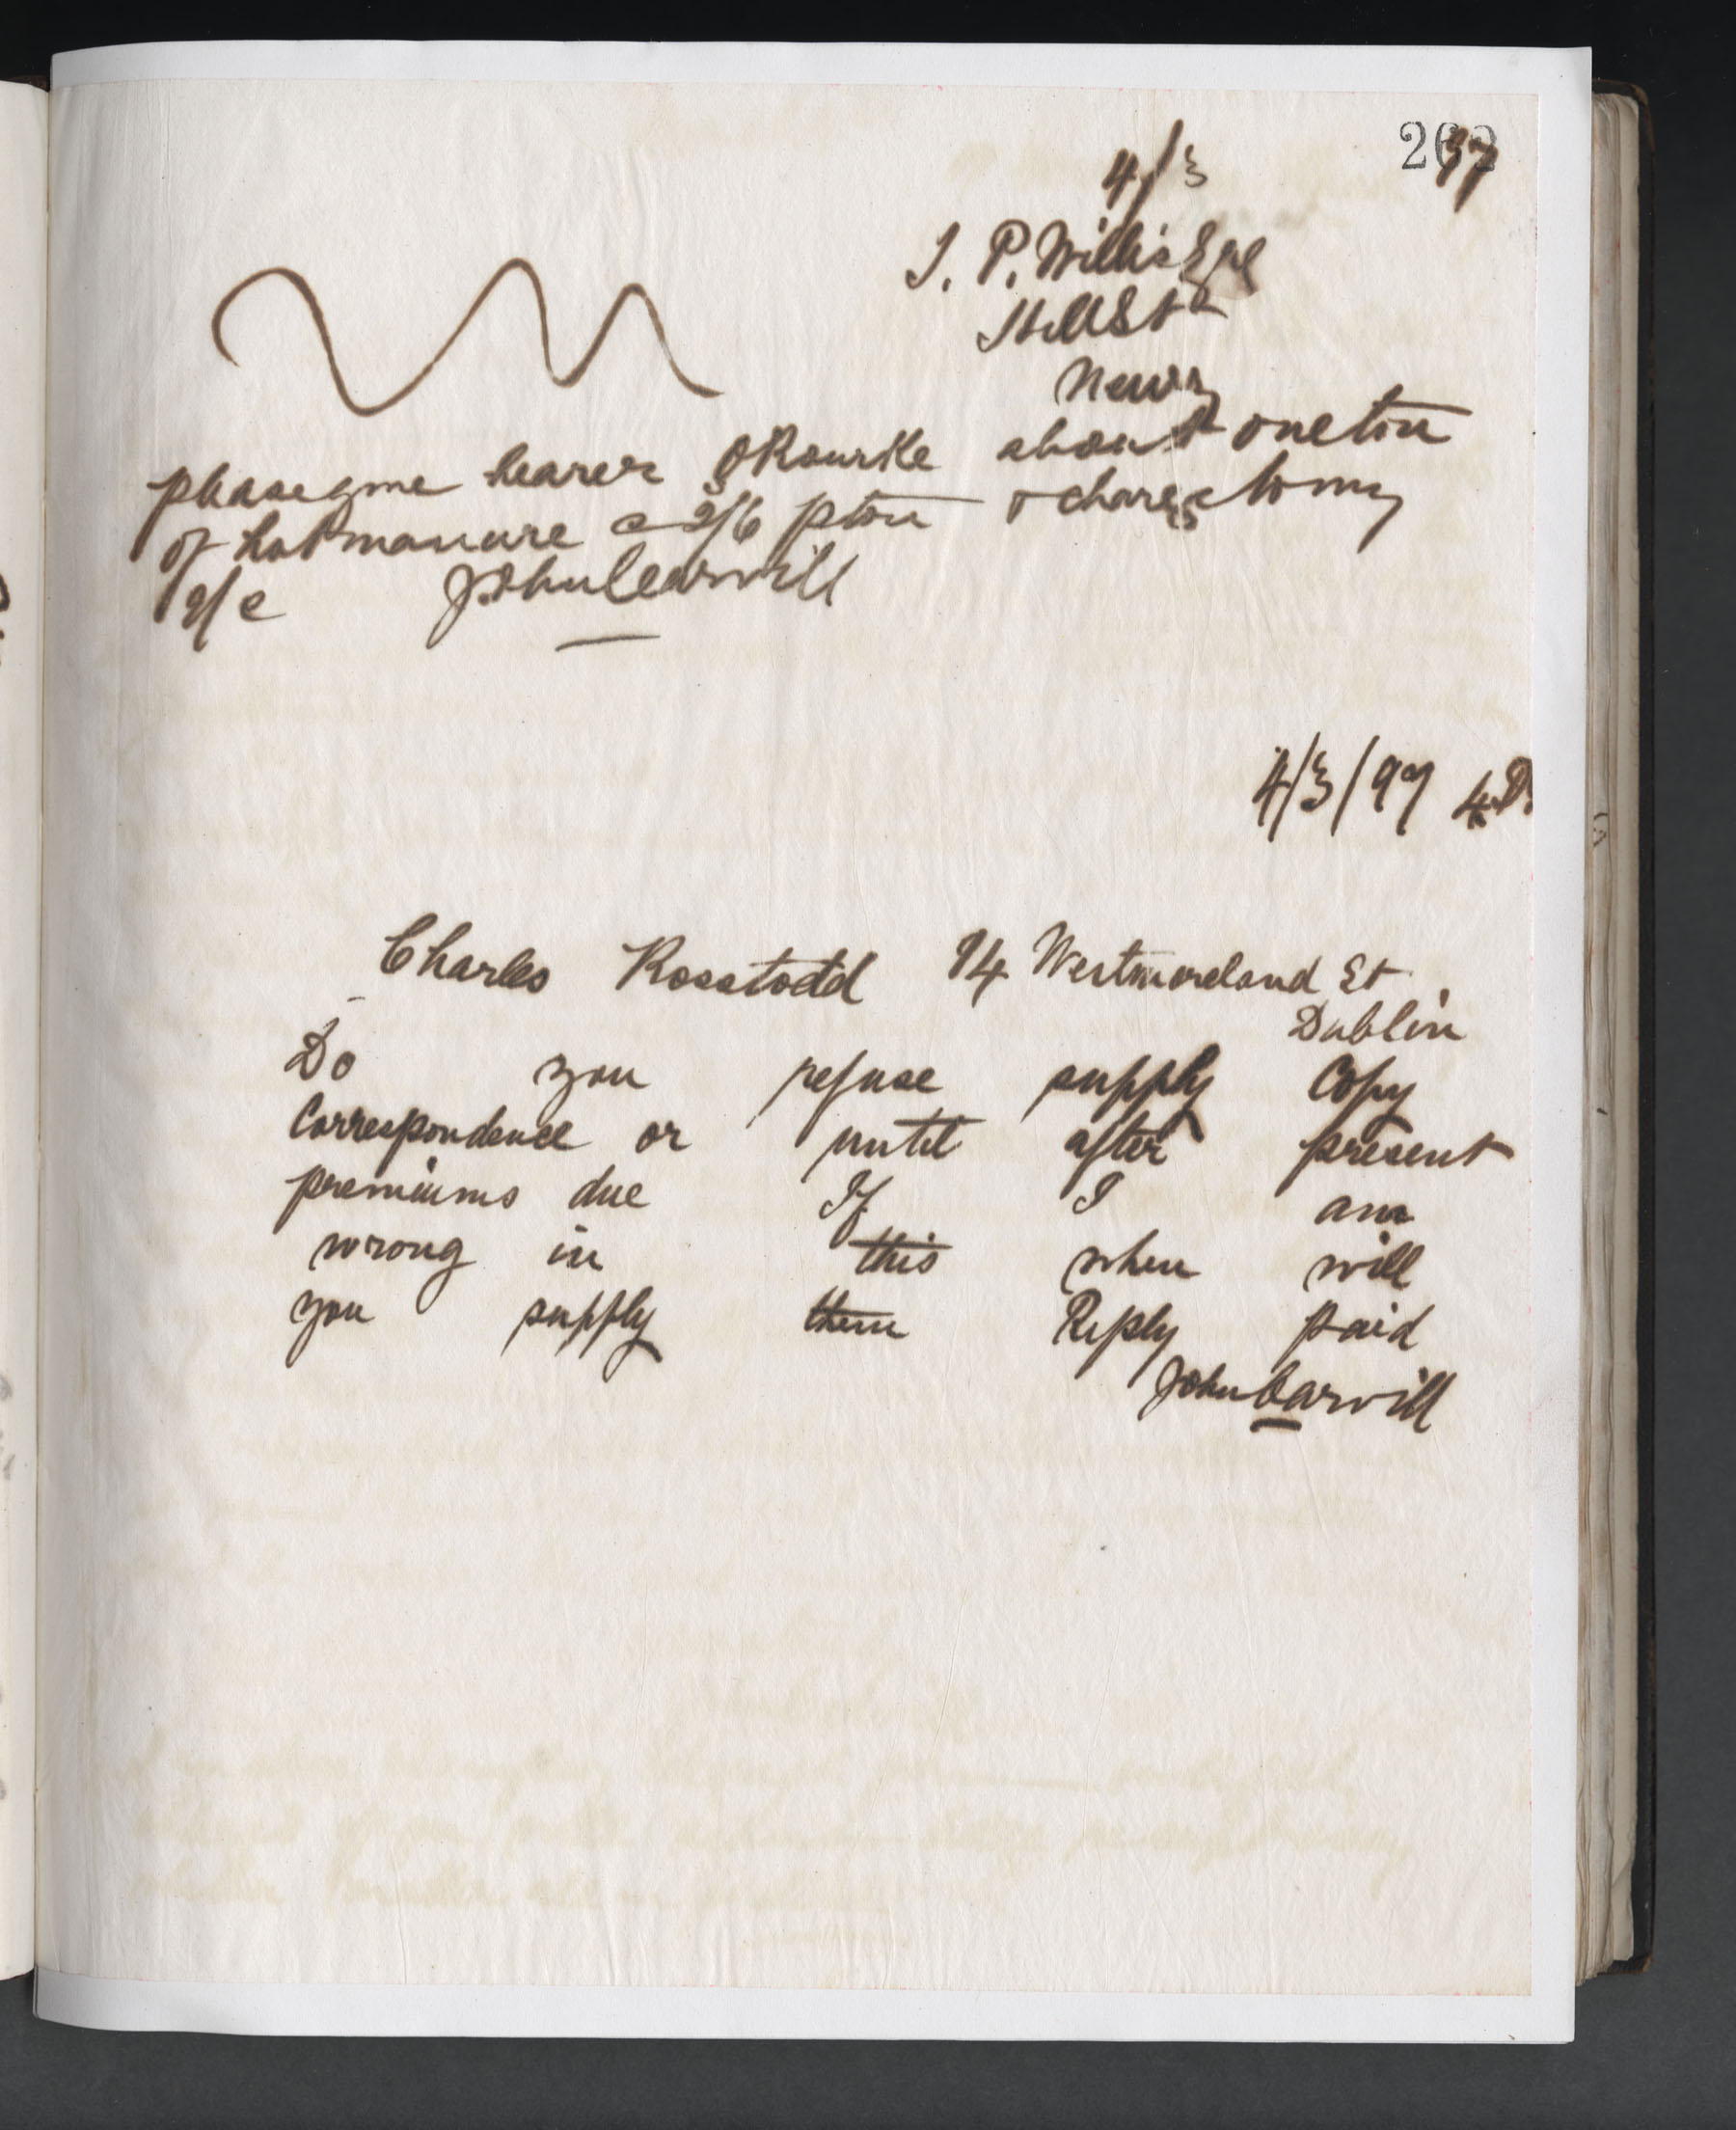 4/3 97
J. P. Willis Esq
Hill St
Newry
please give bearer O Rourke about one ton
of hot manure @ 2/6 p ton & charge to my
a/c John Carvill
4/3/97
Charles Rosstodd 14 Westmoreland St
Dublin
Do you refuse supply Copy
Correspondence or until after present
premiums due If I am
wrong in this when will
you supply them Reply paid
John Carvill